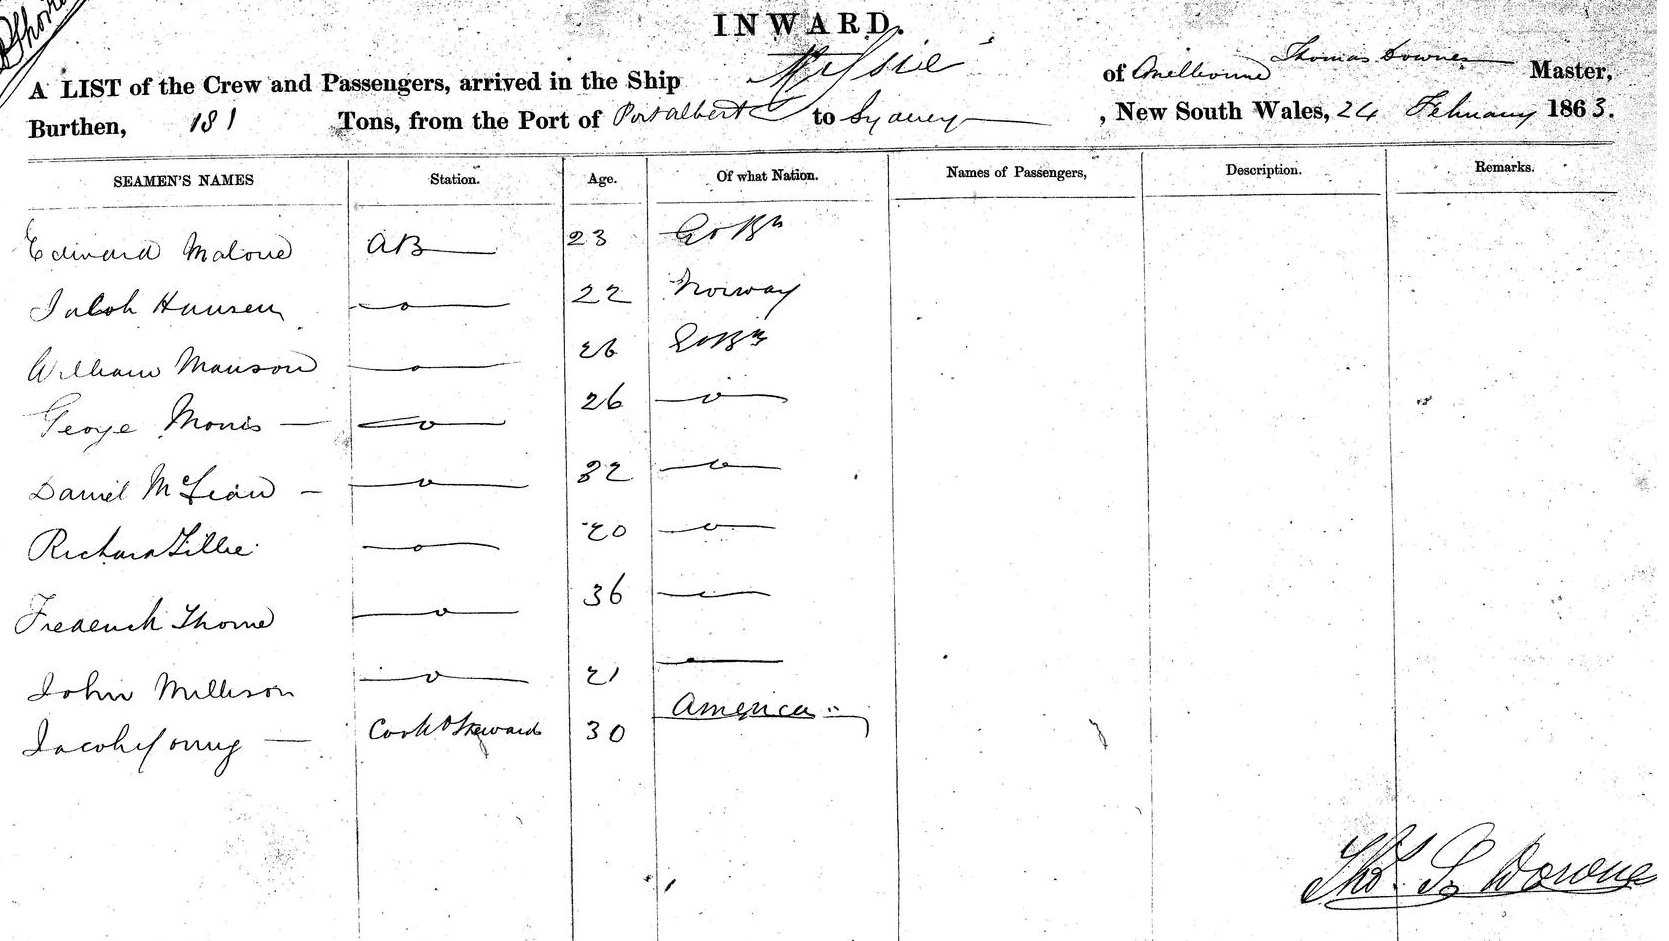 INWARD.
A LIST of the Crew and Passengers, arrived in the Ship of Melbourne Thomas Downes Master,
Burthen, 181 Tons, from the Port of Port Albert to Sydney , New South Wales, 24 February 1863.
SEAMEN'S NAMES Station. Age. Of what Nation. Names of Passengers, Description. Remarks.
Edward Malone AB 23 Gt Bn
Jacob Hansen —o— 22 Norway
William Manson —o— 26 Gt Bn
George Morris — —o— 26 —o—
Daniel McLean — —o— 32 —o—
Richard Lillie —o— 20 —o—
Frederick Thorne —o— 36 —o—
John Millison —o— 21 —o—
Jacob Young — Cook & Steward 30 America
Thos. S. Downes